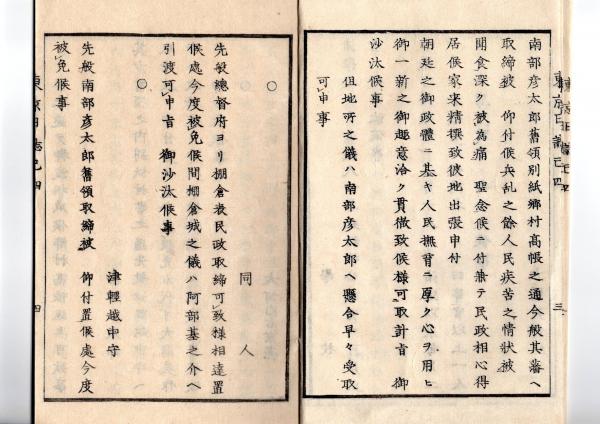 南部彦太郎舊領別紙郷村高帳之通今般其藩ヘ
取締被　仰付候兵乱之餘人民疾苦之情狀被
聞食深ク被為痛　聖念候ニ付兼テ民政相心得
居候家来精撰致彼地出張申付
朝廷之御政體ニ基キ人民撫育ニ厚ク心ヲ用ヒ
御一新之御趣意洽ク貫徹致候様可取計旨　御
沙汰候事
但地所之儀ハ南部彦太郎ヘ懸合早々受取
可申事
東京日誌己四
三
○
同　人
先般總督府ヨリ棚倉表民政取締可致様相達置
候處今度被免候間棚倉城之儀ハ阿部基之介ヘ
引渡可申旨　御沙汰候事
○
津輕越中守
先般南部彦太郎舊領取締被　仰付置候處今度
被免候事
東京日誌己四
四